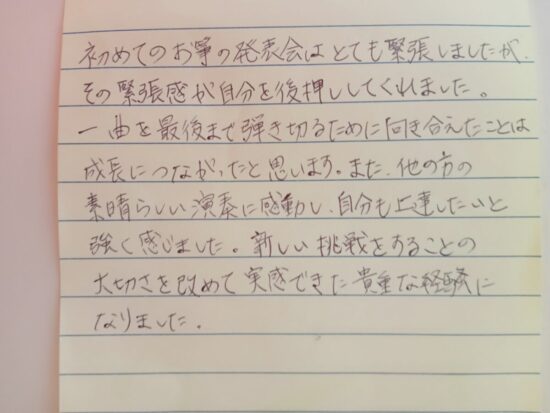 初めてのお箏の発表会はとても緊張しましたが、
その緊張感が自分を後押ししてくれました。
一曲を最後まで弾き切るために向き合えたことは
成長につながったと思います。また、他の方の
素晴らしい演奏に感動し、自分も上達したいと
強く感じました。新しい挑戦をすることの
大切さを改めて実感できた貴重な経験に
なりました。